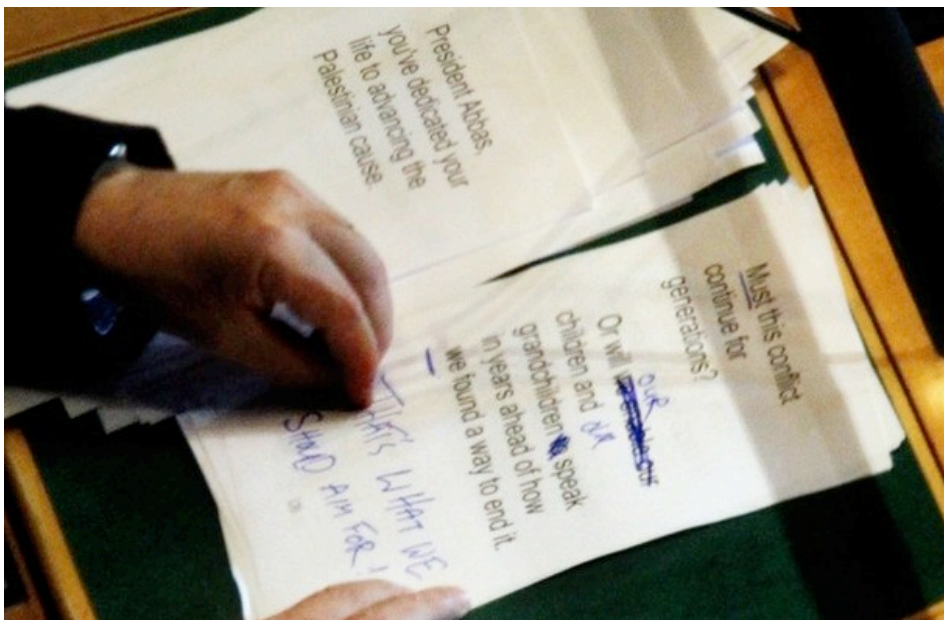 President Abbas,
you've dedicated your
life to advancing the
Palestinian cause.
Must this conflict
continue for
generations?
Or will our
children and our
grandchildren speak
in years ahead of how
we found a way to end it.
THAT'S WHAT WE
SHOULD AIM FOR!